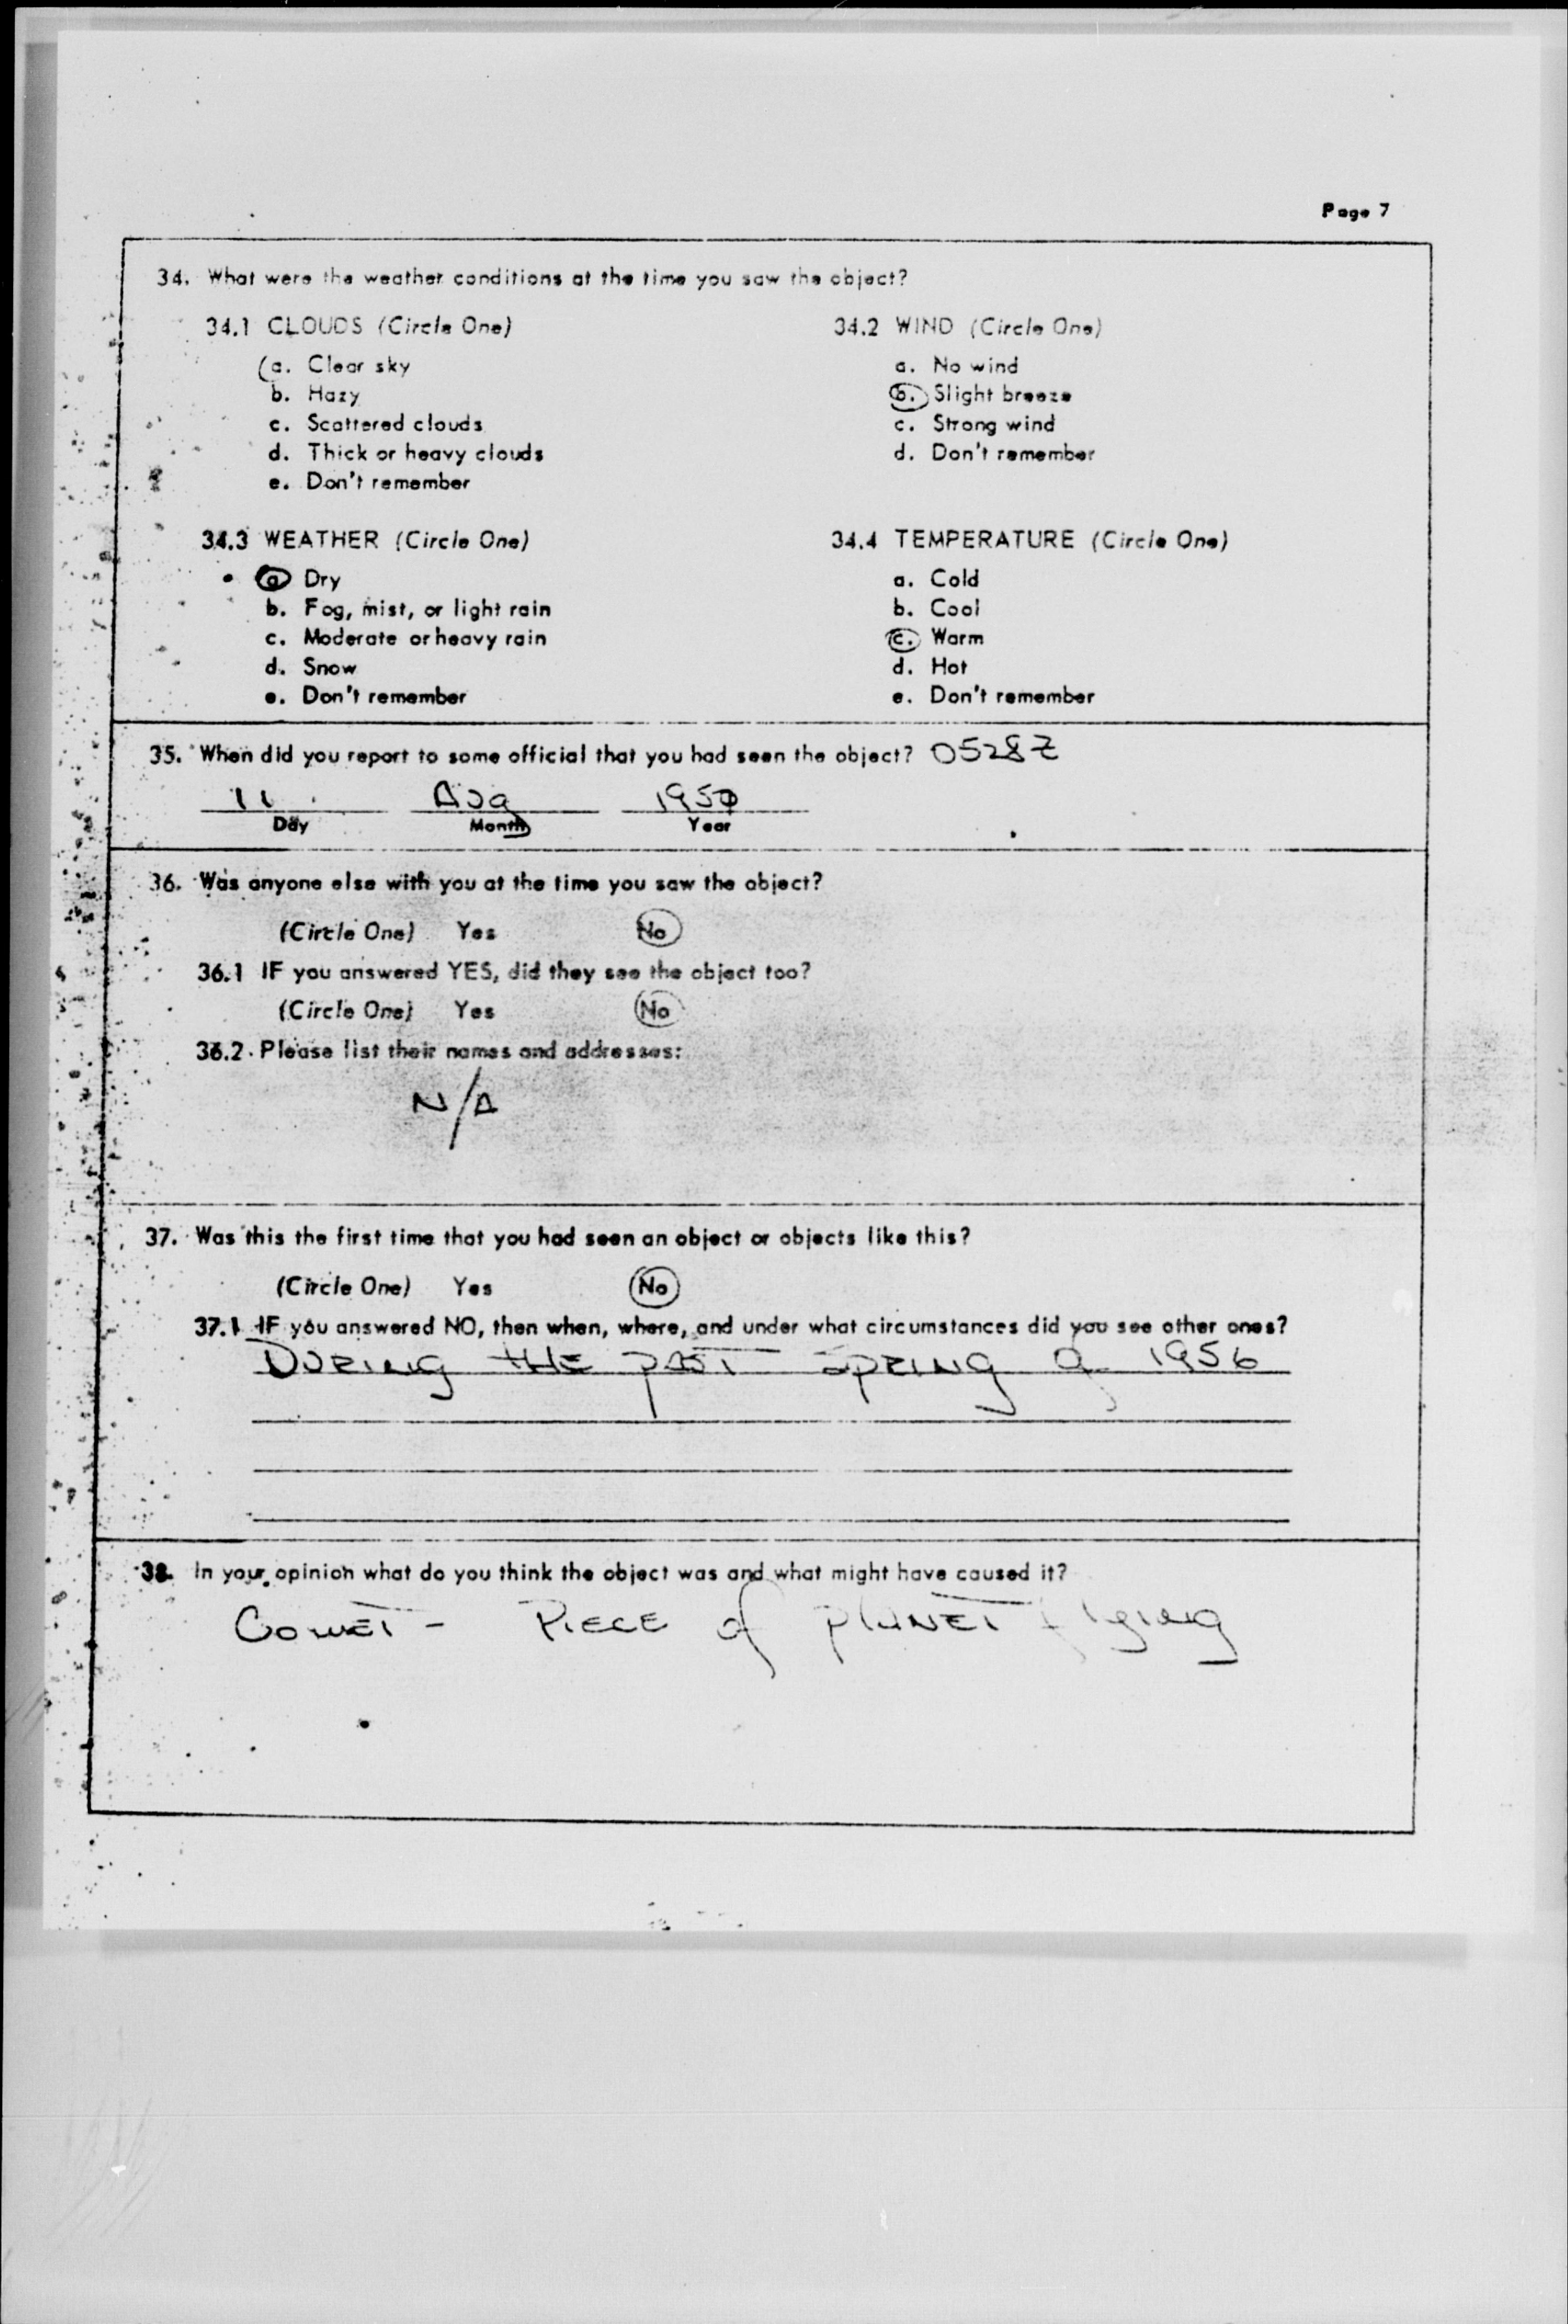 Page 7
34. What were the weather conditions at the time you saw the object?
34.1 CLOUDS (Circle One)
a. Clear sky
b. Hazy
c. Scattered clouds
d. Thick or heavy clouds
e. Don't remember
34.2 WIND (Circle One)
a. No wind
b. Slight breeze
c. Strong wind
d. Don't remember
34.3 WEATHER (Circle One)
a. Dry
b. Fog, mist, or light rain
c. Moderate or heavy rain
d. Snow
e. Don't remember
34.4 TEMPERATURE (Circle One)
a. Cold
b. Cool
c. Warm
d. Hot
e. Don't remember
35. When did you report to some official that you had seen the object? 0528Z
11 Aug
Day Month Year
36. Was anyone else with you at the time you saw the object?
(Circle One) Yes No
36.1 IF you answered YES, did they see the object too?
(Circle One) Yes No
36.2 Please list their names and addresses:
N/A
37. Was this the first time that you had seen an object or objects like this?
(Circle One) Yes No
37.1 IF you answered NO, then when, where, and under what circumstances did you see other ones?
DURING THE PAST SPRING of 1956
38. In your opinion what do you think the object was and what might have caused it?
COMET - PIECE of PLANET flying